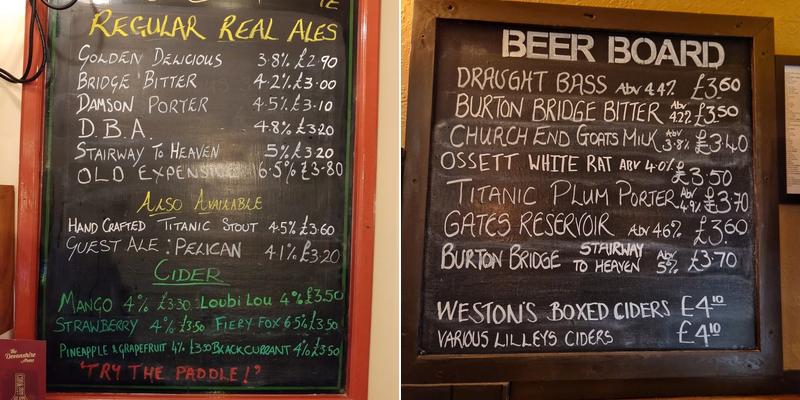 REGULAR REAL ALES
GOLDEN DELICIOUS 3.8% £2.90
BRIDGE BITTER 4.2% £3.00
DAMSON PORTER 4.5% £3.10
D.B.A. 4.8% £3.20
STAIRWAY TO HEAVEN 5% £3.20
OLD EXPENSIVE 6.5% £3.80
ALSO AVAILABLE
HAND CRAFTED TITANIC STOUT 4.5% £3.60
GUEST ALE: PELICAN 4.1% £3.20
CIDER
MANGO 4% £3.30 LOUBI LOU 4% £3.50
STRAWBERRY 4% £3.50 FIERY FOX 6.5% £3.50
PINEAPPLE & GRAPEFRUIT 4% £3.50 BLACKCURRANT 4% £3.50
"TRY THE PADDLE!"
The
Devonshire
Arms
BEER BOARD
DRAUGHT BASS ABV 4.4% £3.60
BURTON BRIDGE BITTER ABV 4.2% £3.50
CHURCH END GOATS MILK ABV 3.8% £3.40
OSSETT WHITE RAT ABV 4.0% £3.50
TITANIC PLUM PORTER ABV 4.9% £3.70
GATES RESERVOIR ABV 4.6% £3.60
BURTON BRIDGE STAIRWAY TO HEAVEN ABV 5% £3.70
WESTON'S BOXED CIDERS £4.10
VARIOUS LILLEYS CIDERS £4.10